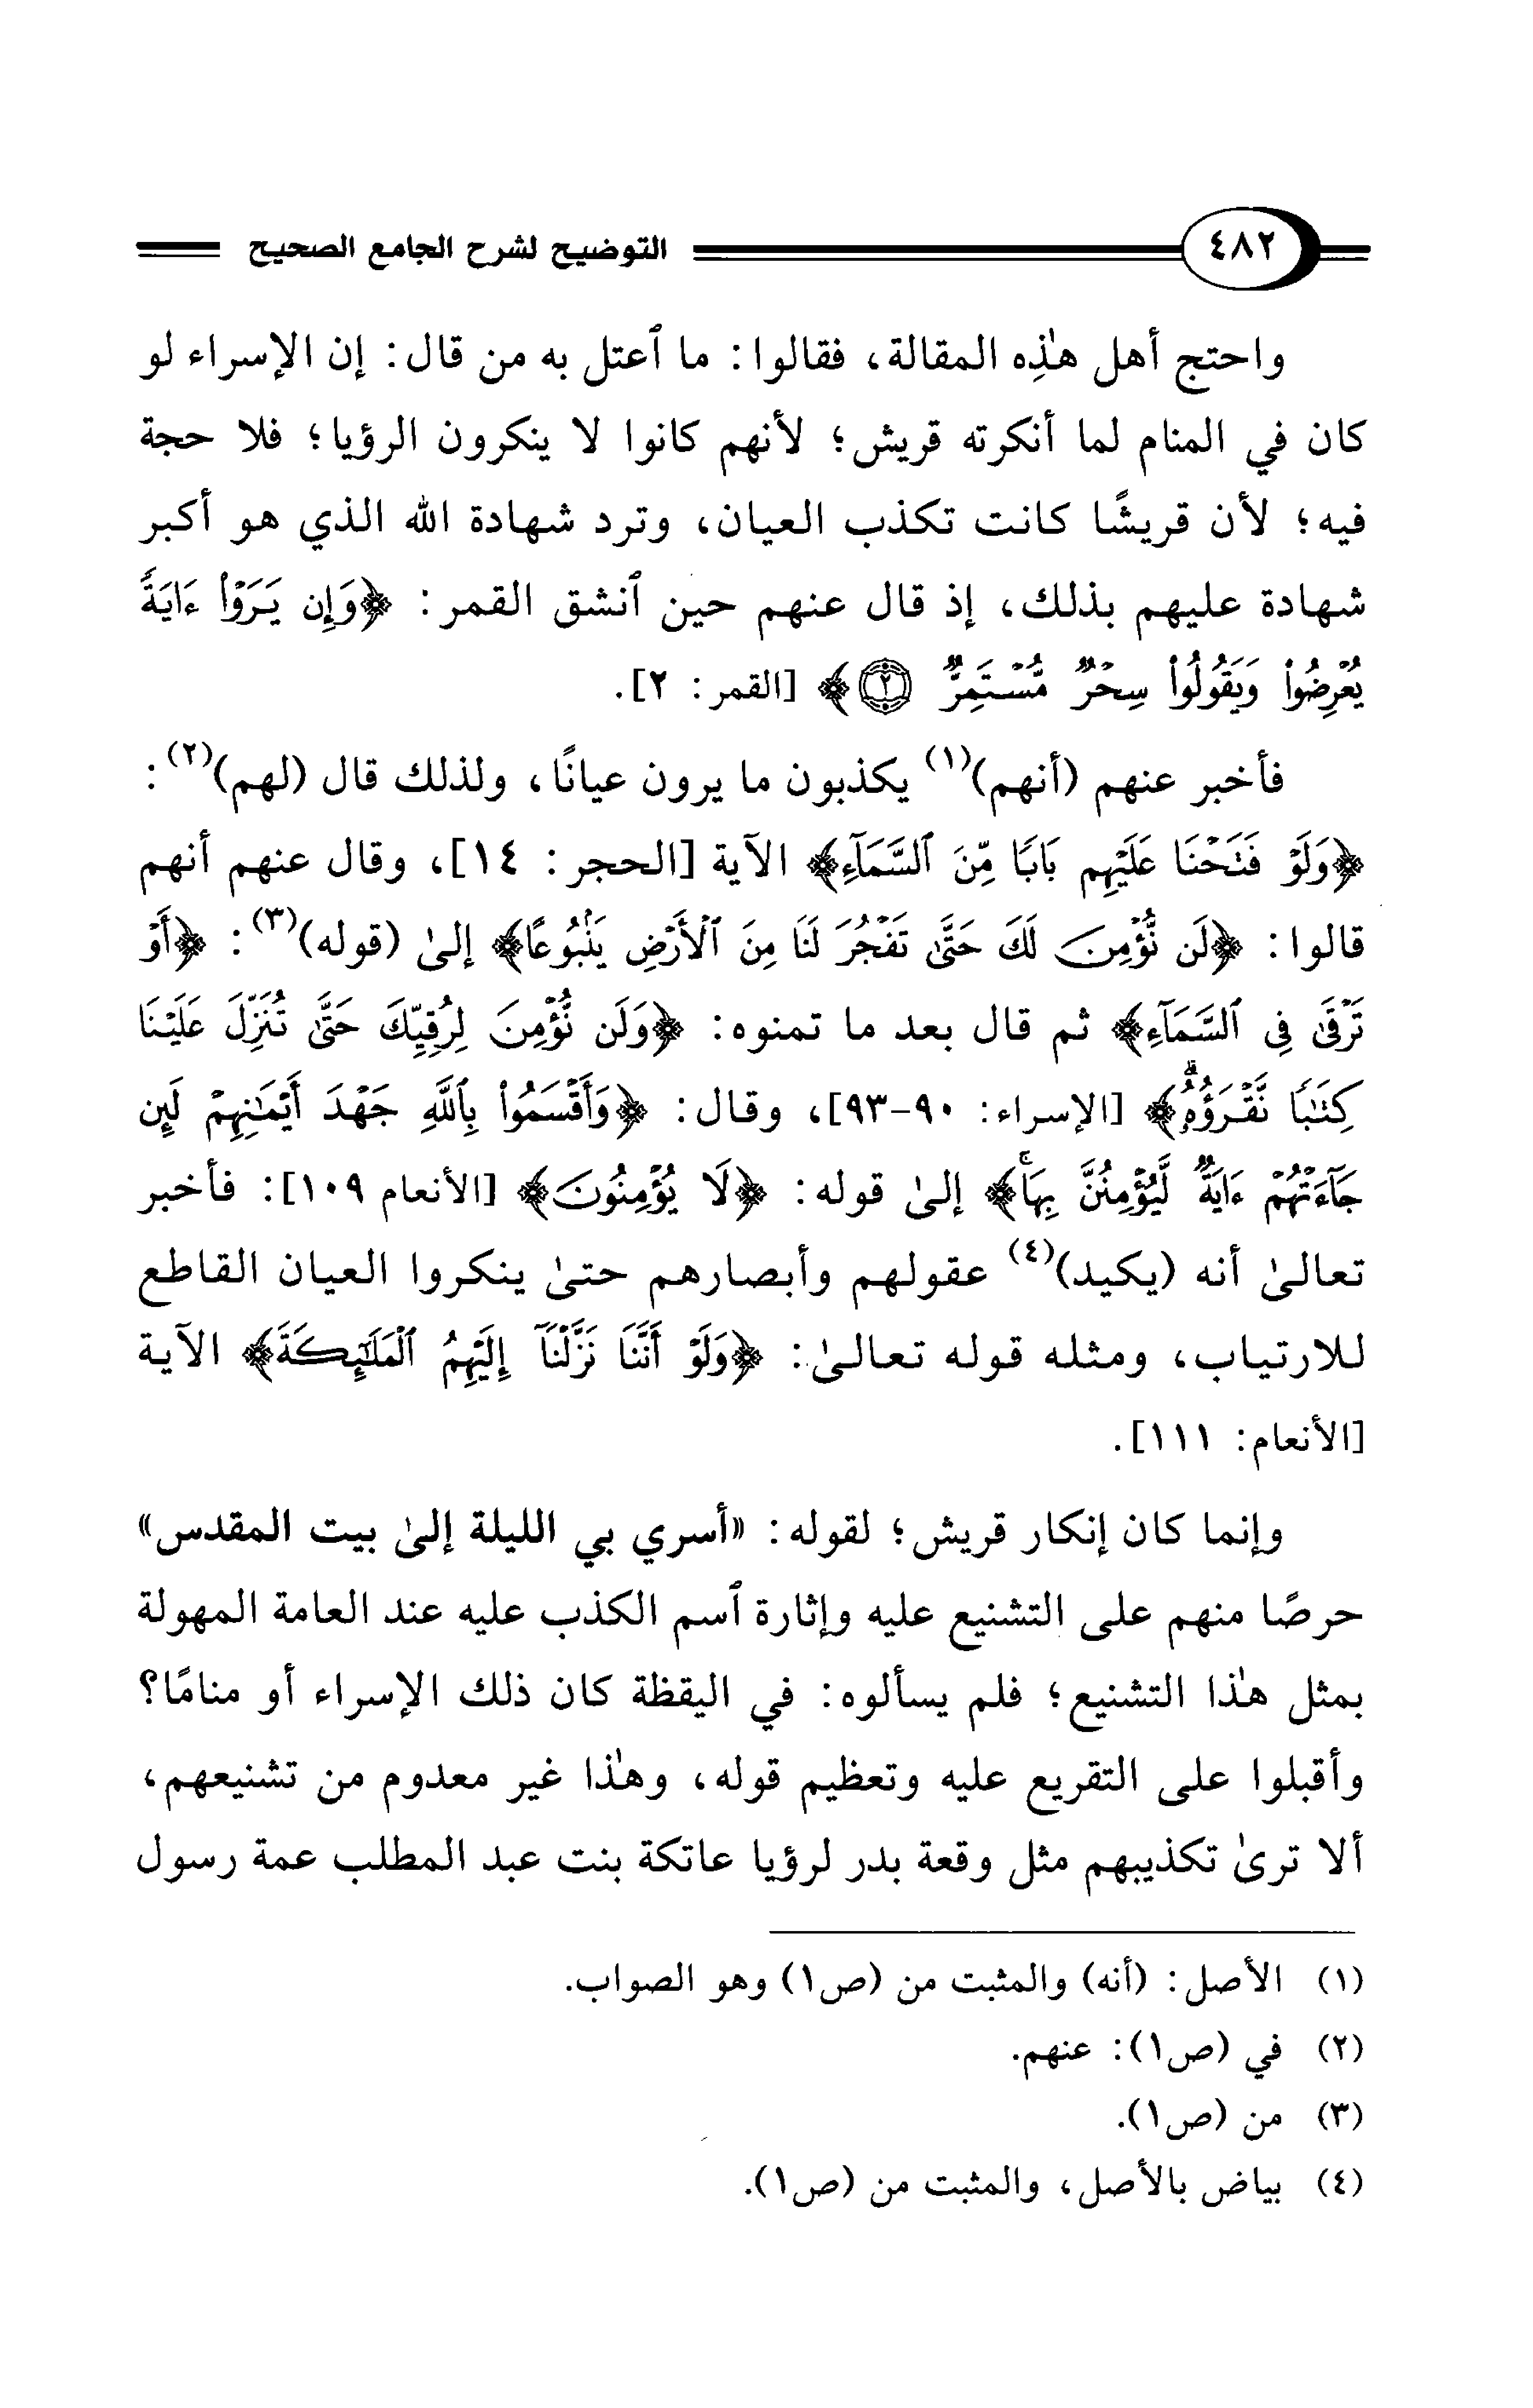 ٤٨٢ التوضيح لشرح الجامع الصحيح
واحتج أهل هٰذِه المقالة، فقالوا: ما ٱعتل به من قال: إن الإسراء لو
كان في المنام لما أنكرته قريش؛ لأنهم كانوا لا ينكرون الرؤيا؛ فلا حجة
فيه؛ لأن قريشًا كانت تكذب العيان، وترد شهادة الله الذي هو أكبر
شهادة عليهم بذلك، إذ قال عنهم حين ٱنشق القمر: ﴿وَإِن يَرَوْا۟ ءَايَةً
يُعْرِضُوا۟ وَيَقُولُوا۟ سِحْرٌ مُّسْتَمِرٌّ ٢﴾ [القمر: ٢].
فأخبر عنهم (أنهم)(١) يكذبون ما يرون عيانًا، ولذلك قال (لهم)(٢):
﴿وَلَوْ فَتَحْنَا عَلَيْهِم بَابًا مِّنَ ٱلسَّمَآءِ﴾ الآية [الحجر: ١٤]، وقال عنهم أنهم
قالوا: ﴿لَن نُّؤْمِنَ لَكَ حَتَّىٰ تَفْجُرَ لَنَا مِنَ ٱلْأَرْضِ يَنۢبُوعًا﴾ إلىٰ (قوله)(٣): ﴿أَوْ
تَرْقَىٰ فِى ٱلسَّمَآءِ﴾ ثم قال بعد ما تمنوه: ﴿وَلَن نُّؤْمِنَ لِرُقِيِّكَ حَتَّىٰ تُنَزِّلَ عَلَيْنَا
كِتَـٰبًا نَّقْرَؤُهُۥ﴾ [الإسراء: ٩٠-٩٣]، وقال: ﴿وَأَقْسَمُوا۟ بِٱللَّهِ جَهْدَ أَيْمَـٰنِهِمْ لَئِن
جَآءَتْهُمْ ءَايَةٌ لَّيُؤْمِنُنَّ بِهَا﴾ إلىٰ قوله: ﴿لَا يُؤْمِنُونَ﴾ [الأنعام ١٠٩]: فأخبر
تعالىٰ أنه (يكيد)(٤) عقولهم وأبصارهم حتىٰ ينكروا العيان القاطع
للارتياب، ومثله قوله تعالىٰ: ﴿وَلَوْ أَنَّنَا نَزَّلْنَآ إِلَيْهِمُ ٱلْمَلَـٰٓئِكَةَ﴾ الآية
[الأنعام: ١١١].
وإنما كان إنكار قريش؛ لقوله: «أسري بي الليلة إلىٰ بيت المقدس»
حرصًا منهم على التشنيع عليه وإثارة ٱسم الكذب عليه عند العامة المهولة
بمثل هٰذا التشنيع؛ فلم يسألوه: في اليقظة كان ذلك الإسراء أو منامًا؟
وأقبلوا على التقريع عليه وتعظيم قوله، وهٰذا غير معدوم من تشنيعهم،
ألا ترىٰ تكذيبهم مثل وقعة بدر لرؤيا عاتكة بنت عبد المطلب عمة رسول
(١) الأصل: (أنه) والمثبت من (ص١) وهو الصواب.
(٢) في (ص١): عنهم.
(٣) من (ص١).
(٤) بياض بالأصل، والمثبت من (ص١).